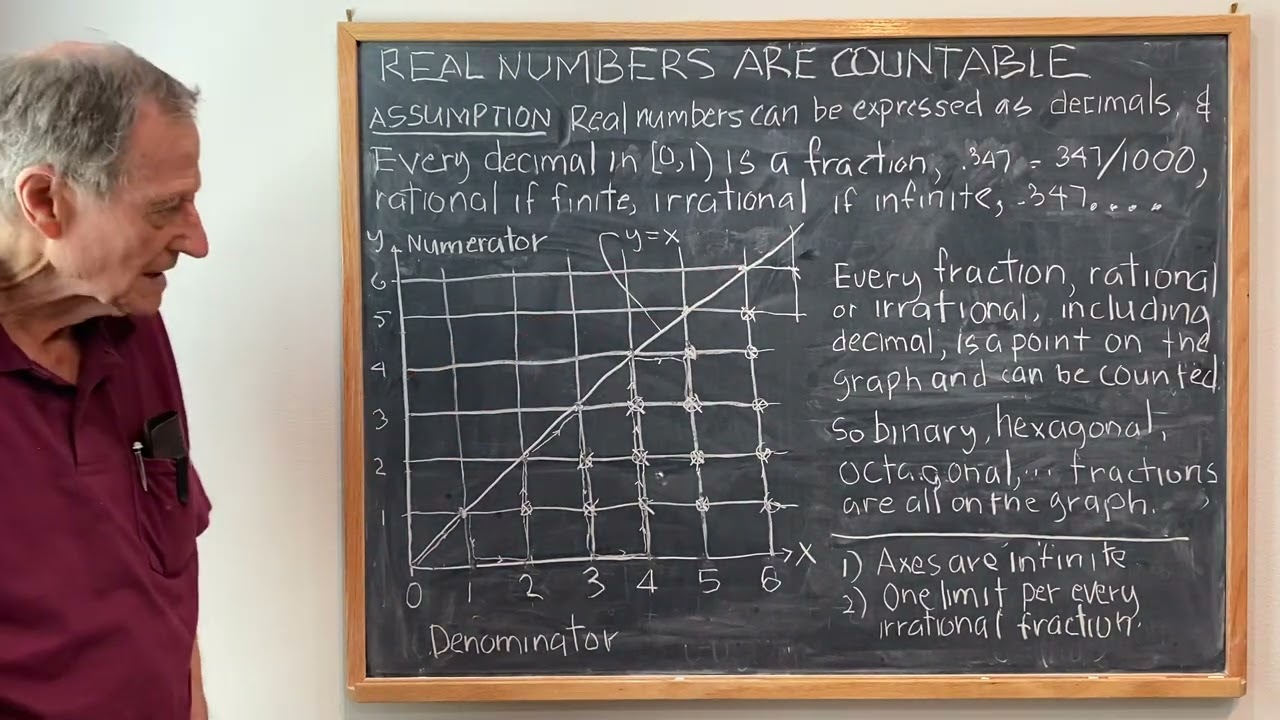 REAL NUMBERS ARE COUNTABLE
ASSUMPTION Real numbers can be expressed as decimals, &
Every decimal in [0,1) is a fraction, .347 = 347/1000,
rational if finite, irrational if infinite, .347....
Y Numerator
y=x
6
5
4
3
2
1
0 1 2 3 4 5 6
X
Denominator
Every fraction, rational
or irrational, including
decimal, is a point on the
graph and can be counted.
So binary, hexagonal,
octagonal,... fractions
are all on the graph.
1) Axes are infinite
2) One limit per every
irrational fraction.